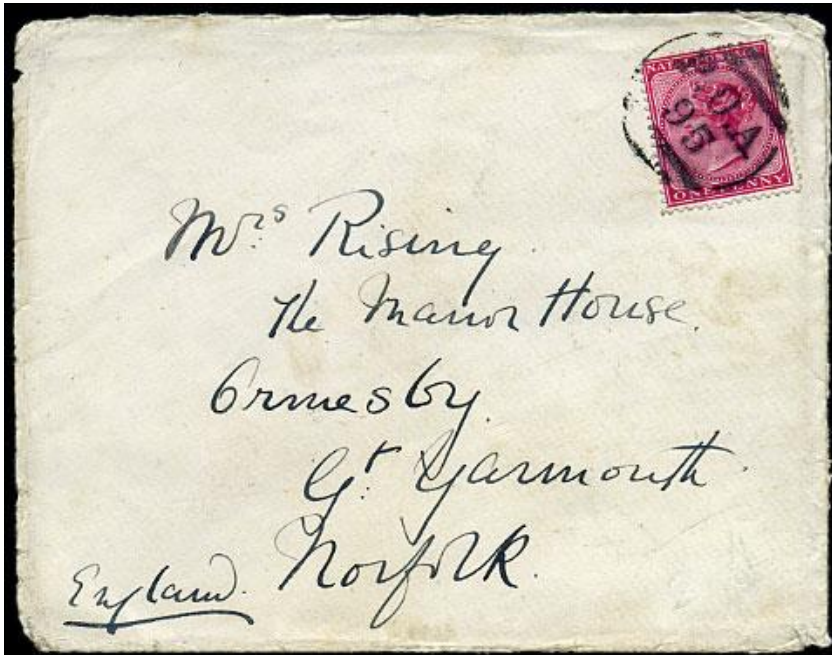 NATAL POSTAGE
P.O.A
95
ONE PENNY
Mrs Rising
The Manor House.
Ormesby.
Gt. Yarmouth.
Norfolk.
England.